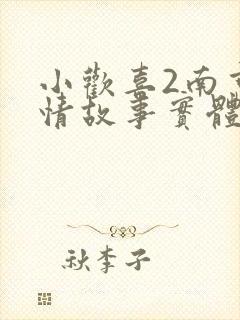 小歡喜2南
情故事實體
秋李子